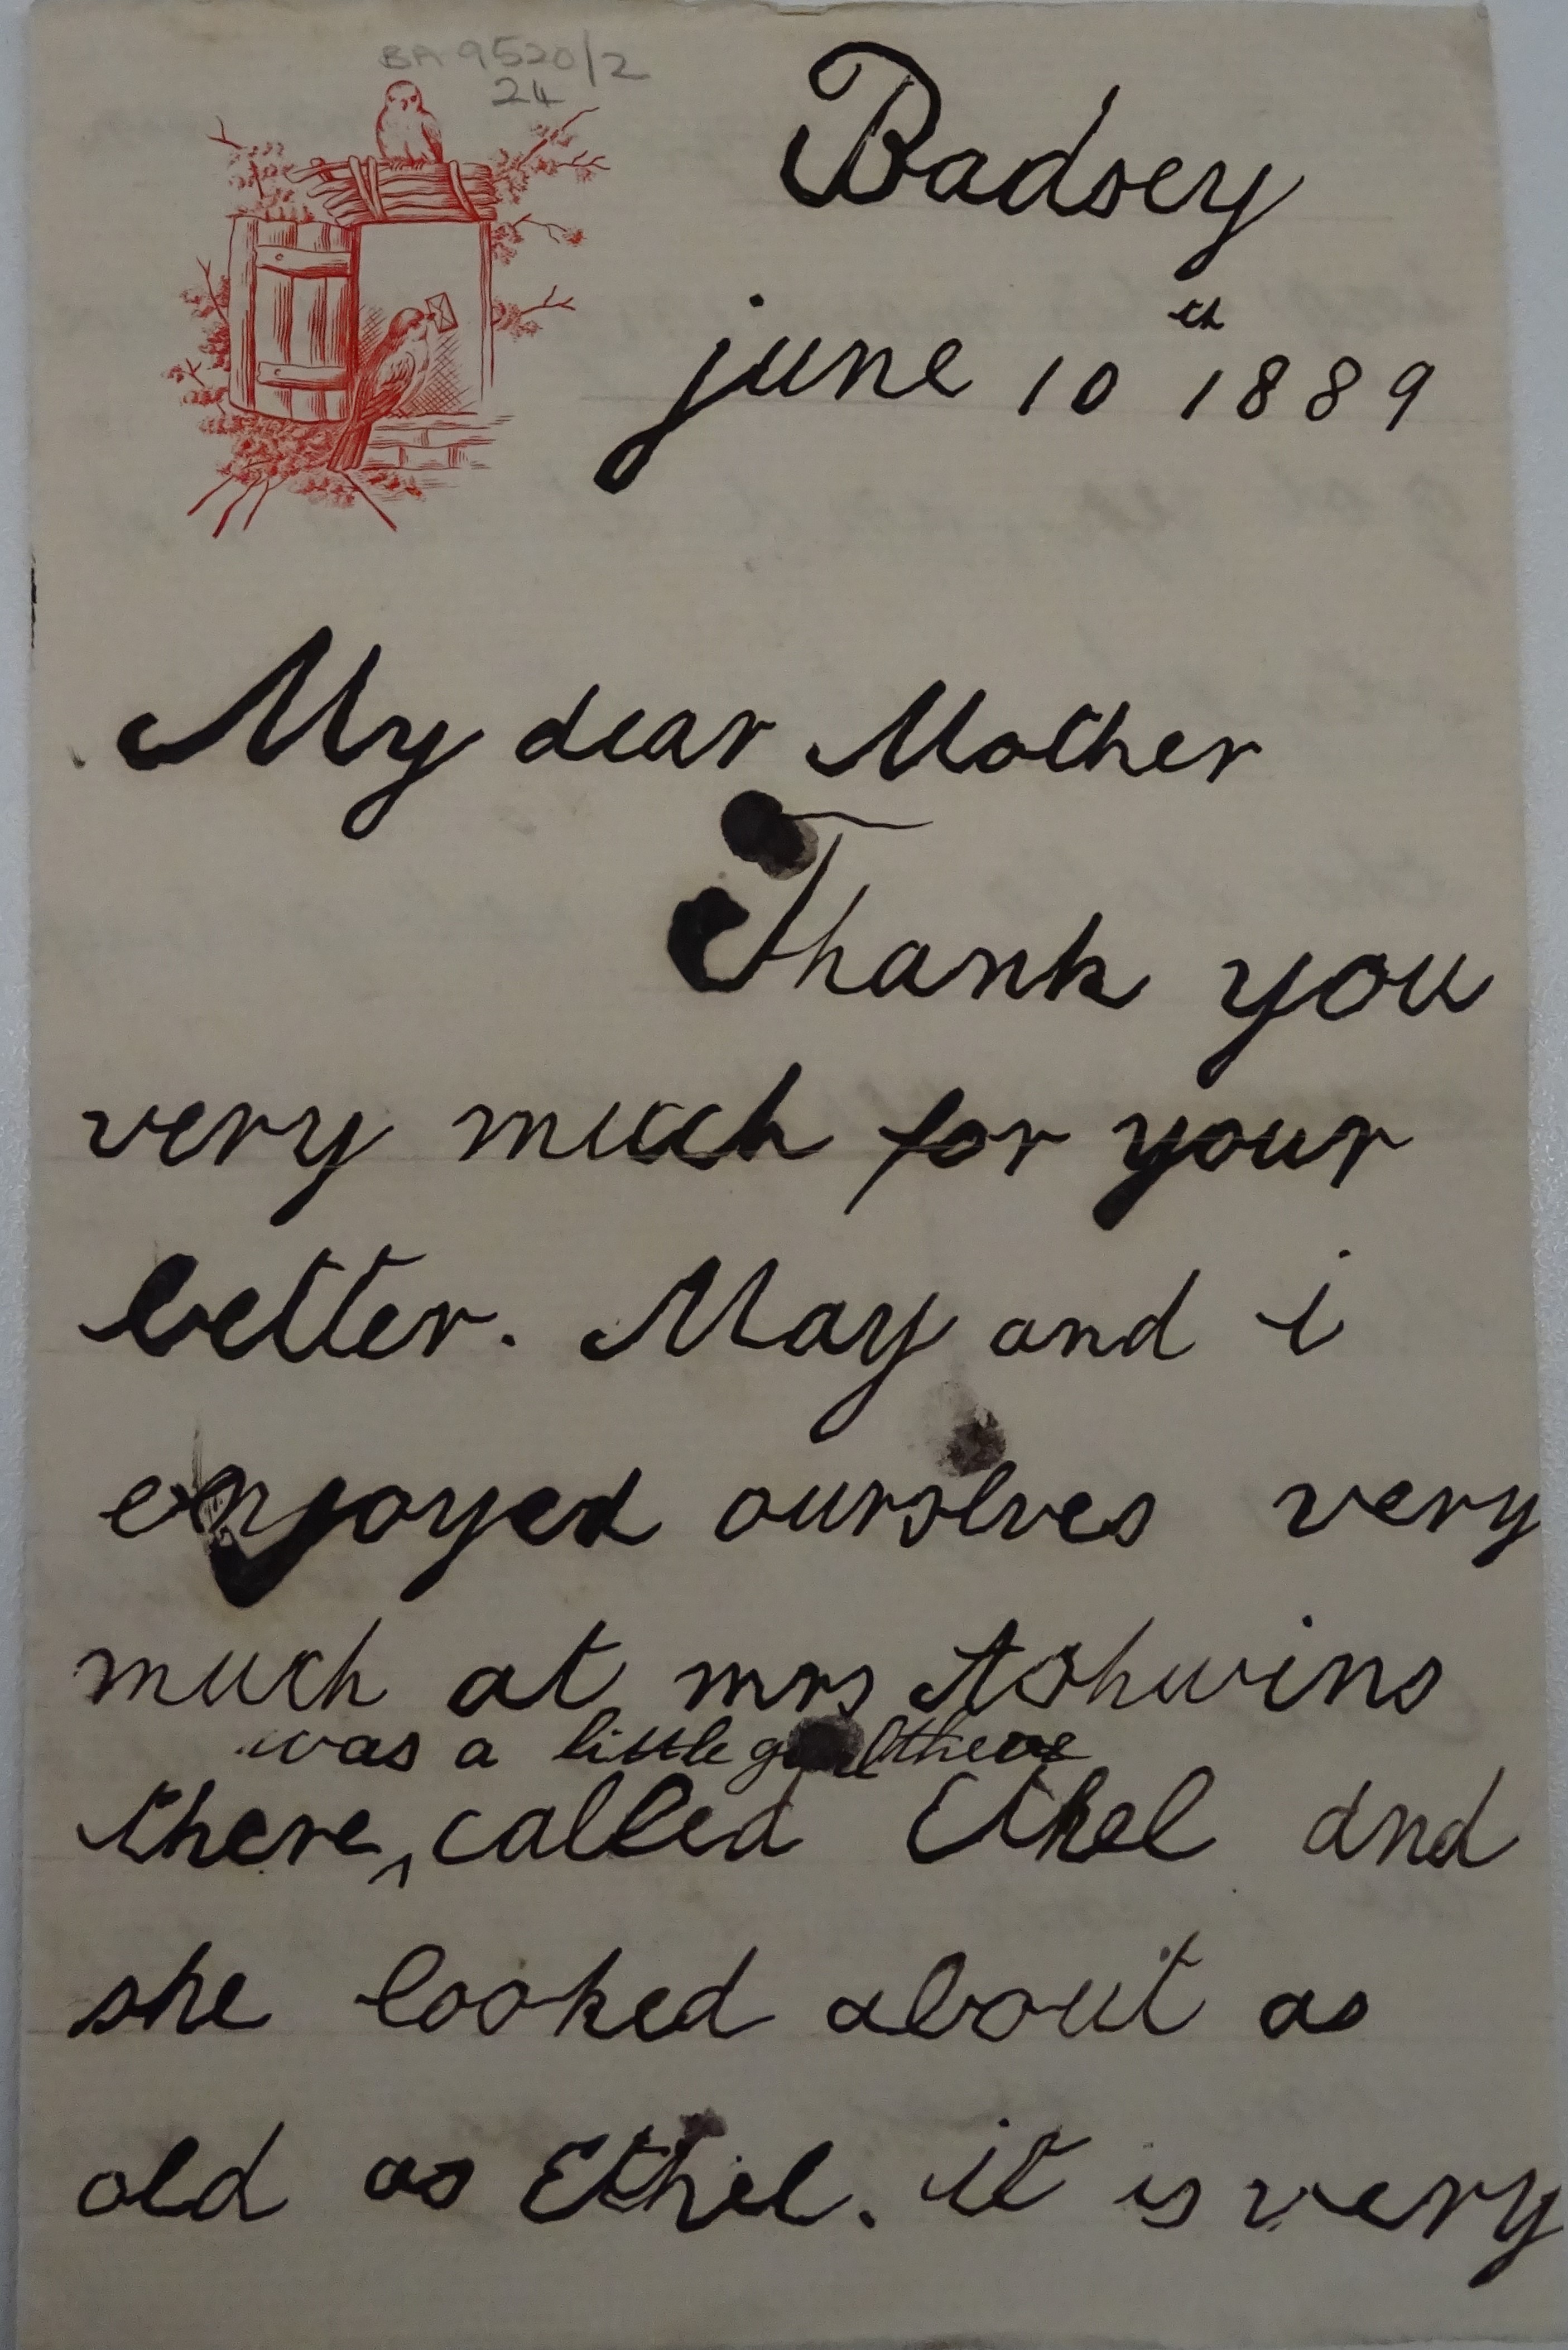 BA 9520/2
24
Badsey
june 10th 1889
My dear Mother
Thank you
very much for your
letter. May and i
enjoyed ourslves very
much at mrs Ashwins
was a little girl there
there, called Ethel and
she looked about as
old as Ethel. it is very